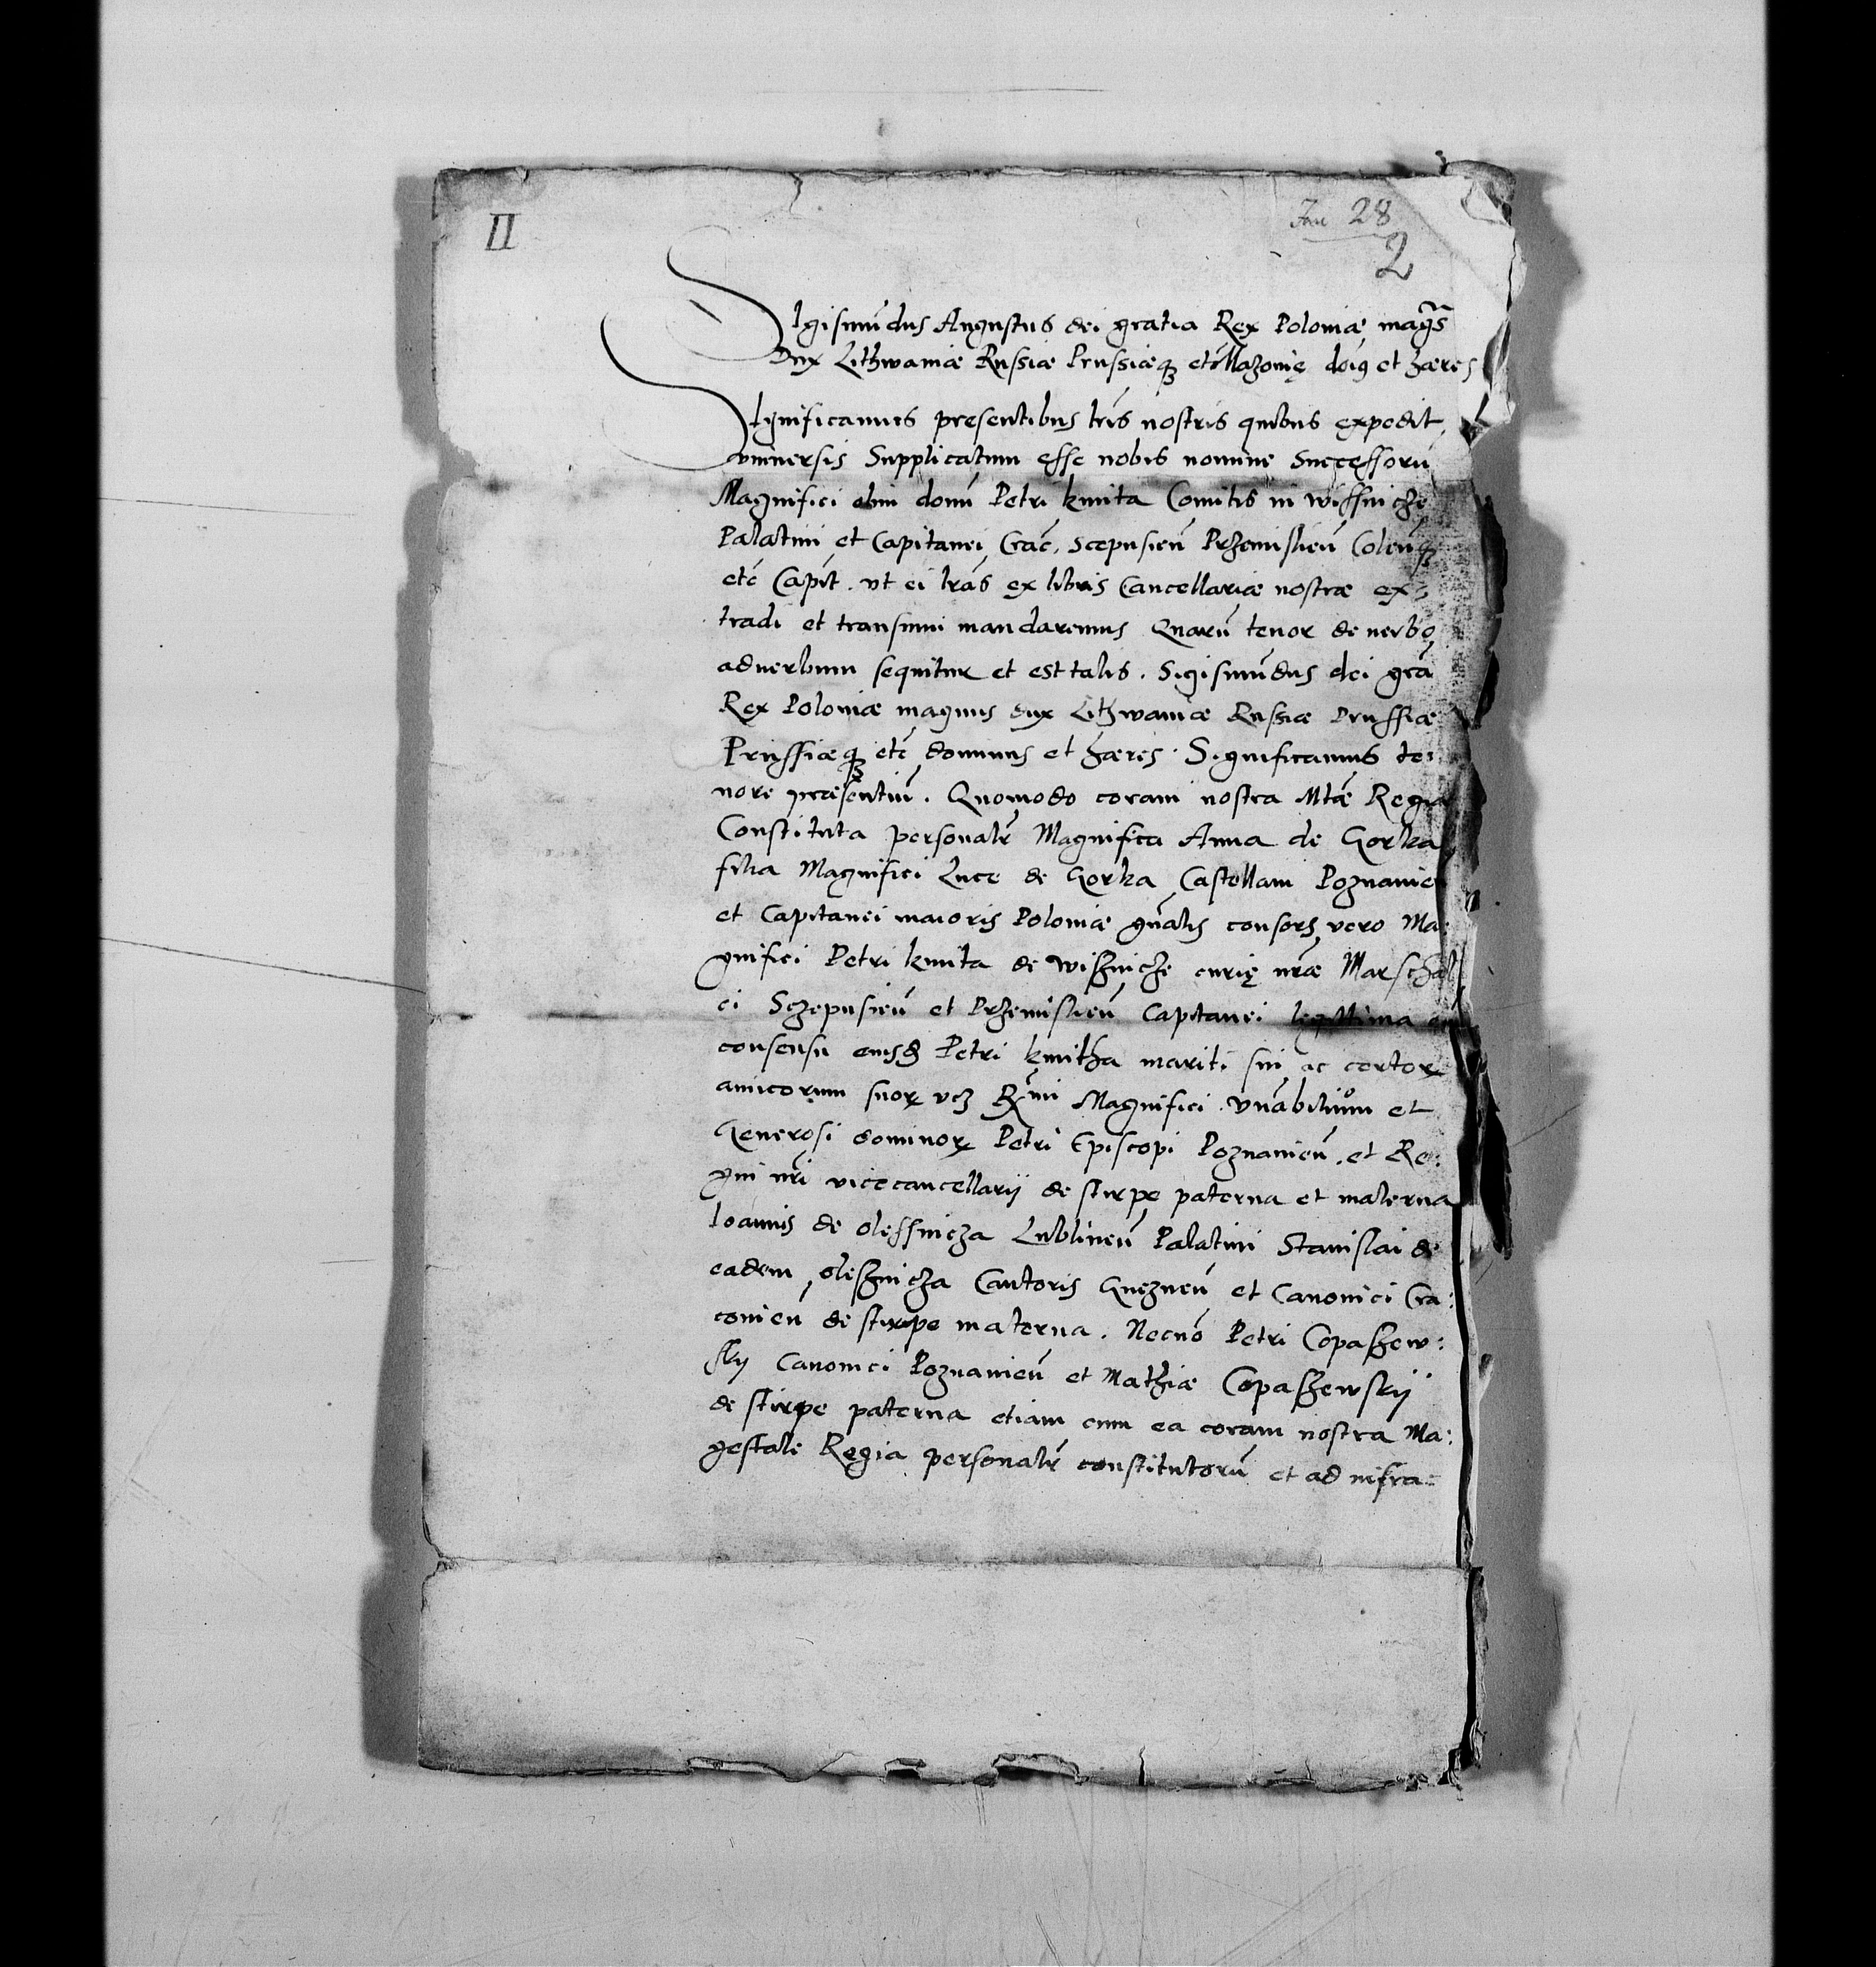 II
Jan 28
2
Sigismūdus Augustus dei gratia Rex Poloniæ, magͬs
Dux Lithwaniæ Russiæ Prussiæqꝫ etc̄ Mazonię do͞iꝯ et hæres
Significamus presentibus lr͞is nostris quibus expedit
vniuersis Supplicatum esse nobis nomine Successorū
Magnifici olim domī Petri kmita Comitis in wissnicze
Palatini et Capitanei Crac̄. Scepusien̄ Przemislien̄ Colen̄qꝫ
etc̄ Capit̄. vt ei lr͞as ex libris Cancellariæ nostræ ex-
tradi et transumi mandaremus Quarū tenor de uerbo
ad uerbum sequitur et est talis. Sigismūdus dei gr͞a
Rex Poloniæ magnus dux Lithwaniæ Russiæ Prussiæ
Prussiæqꝫ etc̄ dominus et hæres. Significamus te:
nore præsentiū. Quomodo coram nostra Mt͞æ Regia
Constituta personalr̄ Magnifica Anna de Gorka
filia Magnifici Luce de Gorka Castellani Poznanien
et Capitanei maioris Poloniæ gn͞alis consors vero Ma:
gnifici Petri kmita de wisznicze curię nr͞æ Marschal
ci Sczepusien̄ et Przemislien̄ Capitanei legittima
consensu eiusd̄ Petri kmitha mariti sui ac certoꝝ
amicorum suoꝝ vcz R͞mi Magnifici vn͞abilium et
Generosi dominoꝝ Petri Episcopi Poznanien̄. et Re:
gni nr͞i vicecancellarij de stirpe paterna et materna
Ioannis de olessnicza Lublinen̄ Palatini Stanislai de
eadem olesznicza Cantoris Gneznen̄ et Canonici Cra:
couien̄ de stirpe materna. Necnō Petri Copaszew:
skij Canonici Poznanien̄ et Mathiæ Copaszewskij
de stirpe paterna etiam cum ea coram nostra Ma:
gestate Regia personalr̄ constitutorū et ad infra: